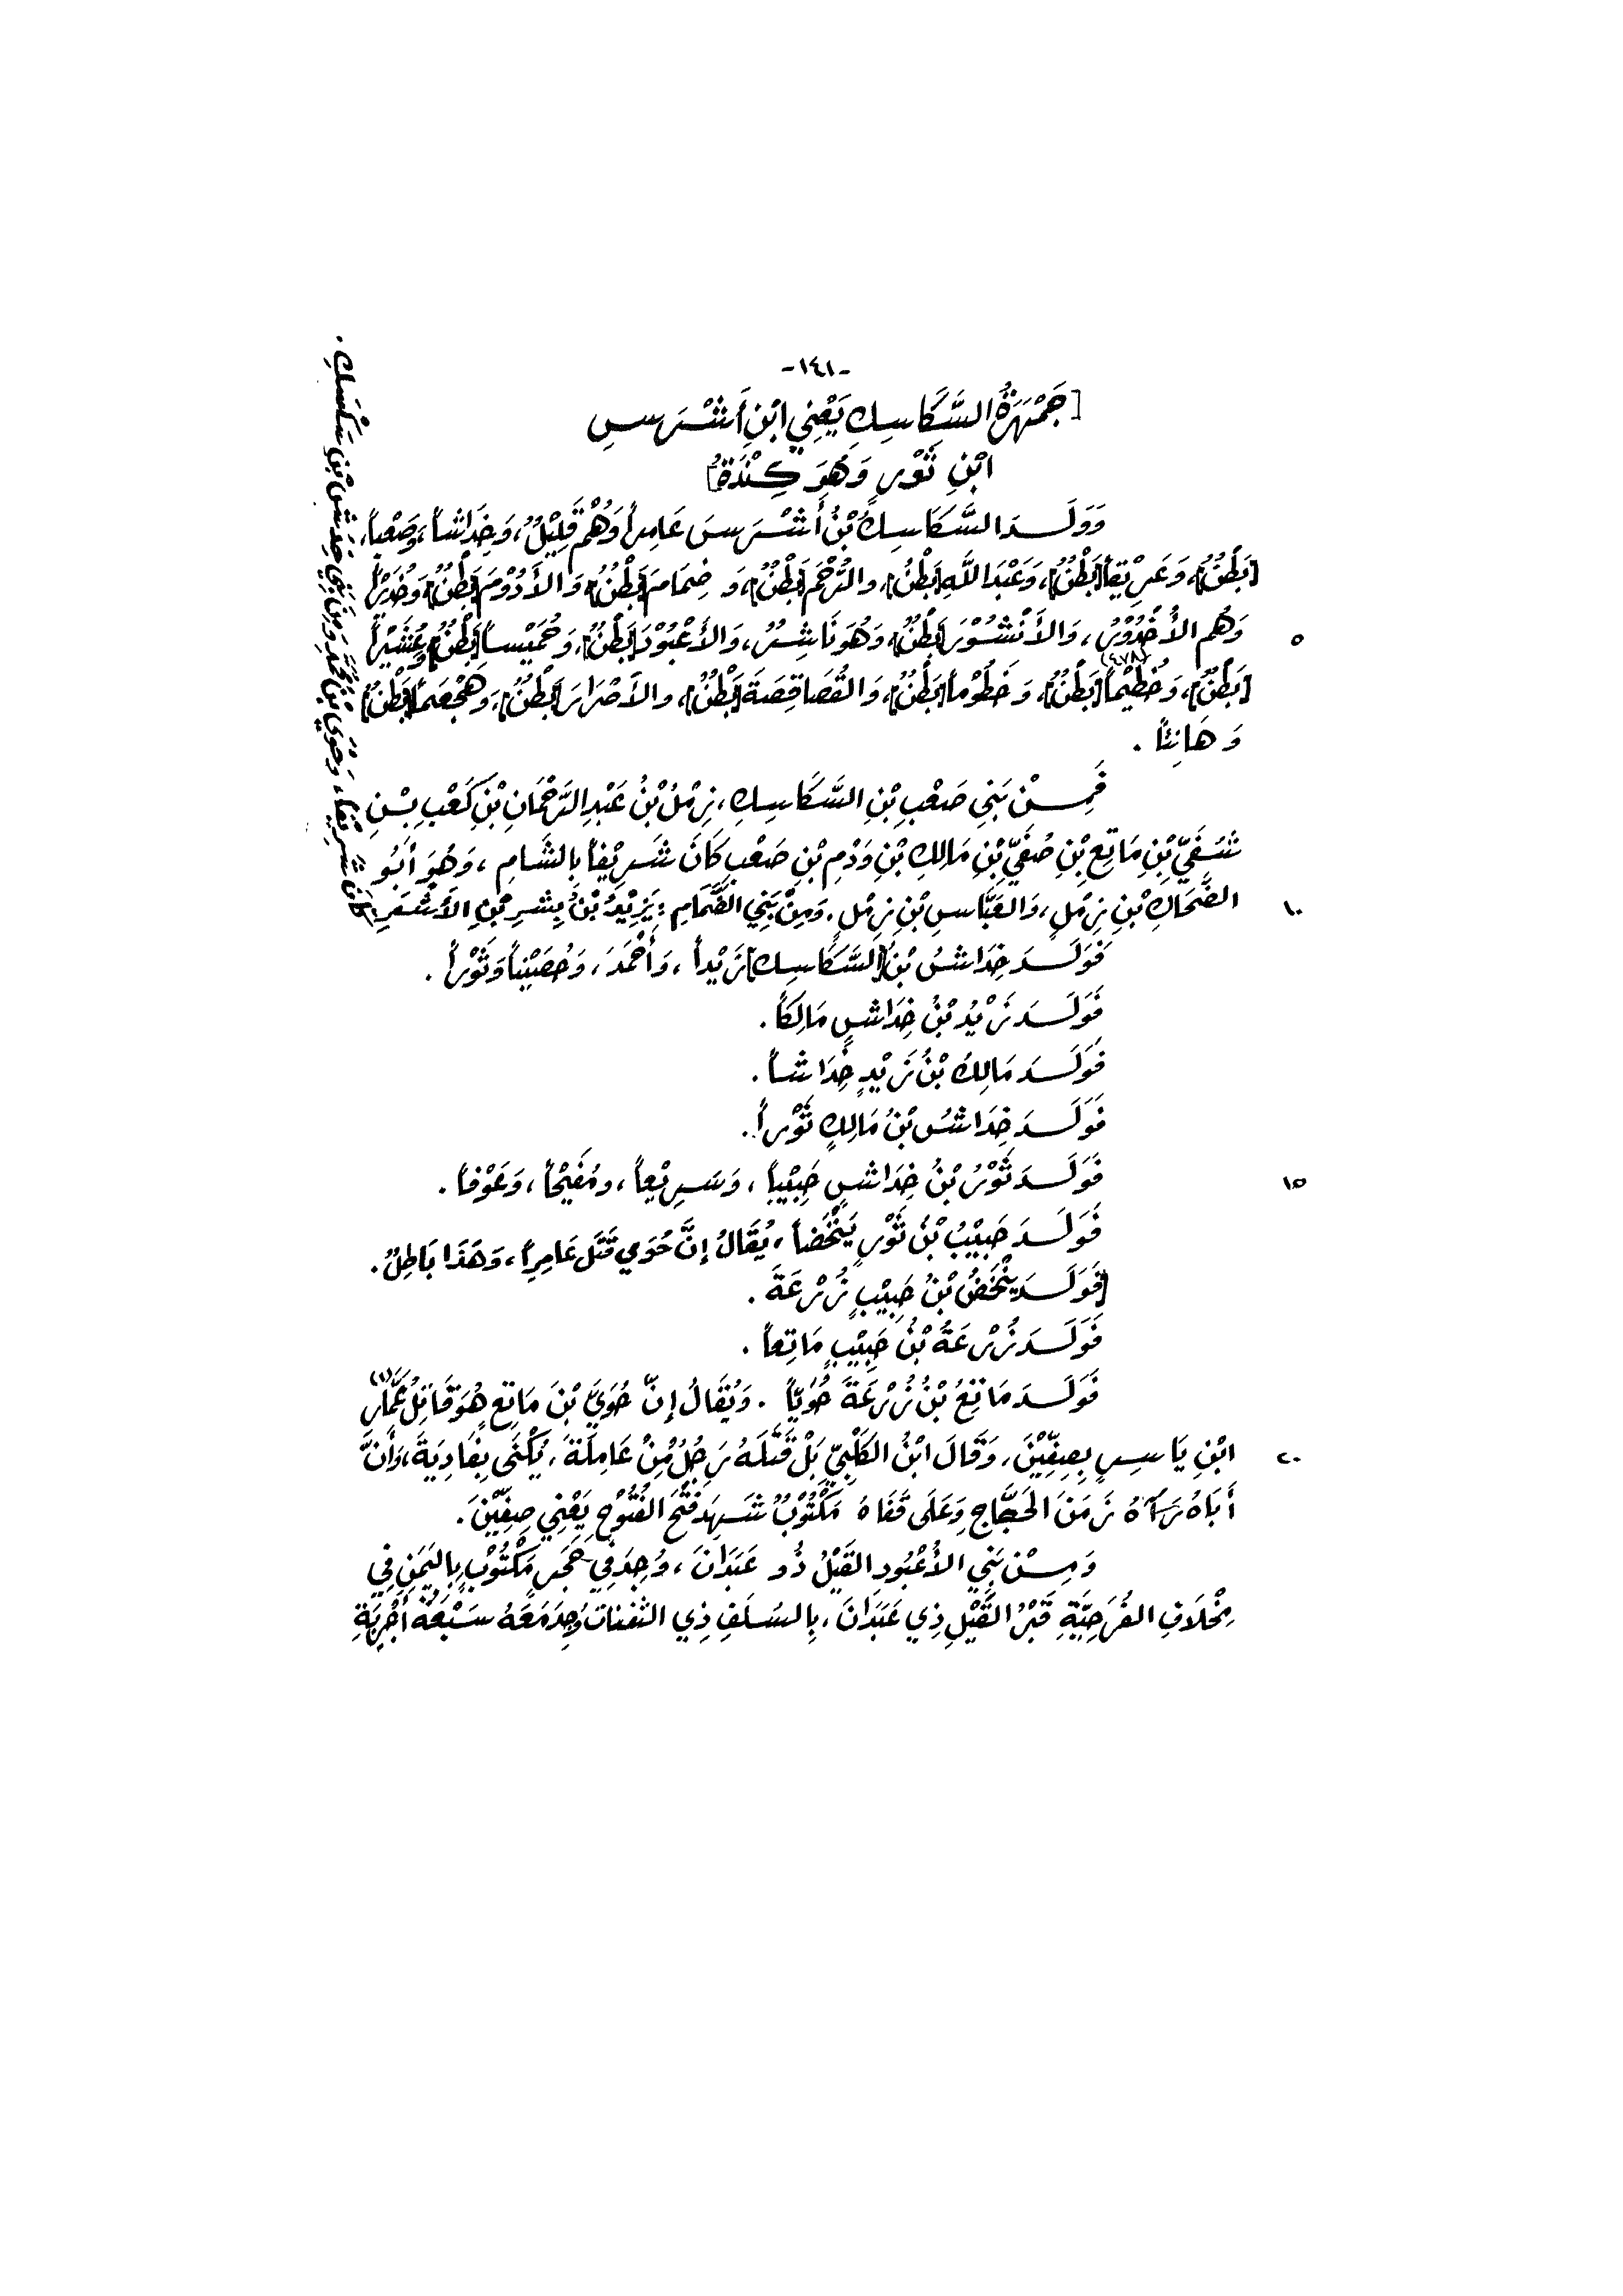 -١٤١-
[جَمْهَرَةُ السَّكَاسِكِ يَعْنِي ابْنِ أَشْرَسِ
ابْنِ ثَوْرٍ وَهُوَ كِنْدَةُ]
وَوَلَدَ السَّكَاسِكُ بْنُ أَشْرَسَ عَامِراً وَهُمْ قَلِيْلٌ، وَخِدَاشاً، وَصَعْباً،
[بَطْنٌ]، وَعَرِيْقاً [بَطْنٌ]، وَعَبْدَ اللَّهِ [بَطْنٌ]، والتَّرْخَمَ [بَطْنٌ]، وَ ضِمَامَ [بَطْنٌ] وَ الأَدْوُمَ [بَطْنٌ] وَخُدَيْراً
وَهُم الأُخْدُوْرُ، وَالأَنْشُوْرَ [بَطْنٌ]، وَهُوَ نَاشِرٌ، وَالأَعْبُوْدَ [بَطْنٌ]، وَحُمَيْساً [بَطْنٌ] وَعُشَيْراً
(٤٧٨)
[بَطْنٌ]، وَخُطَيْماً [بَطْنٌ]، وَ خَطُوْماً [بَطْنٌ]، وَالقُصَاقِصَةَ [بَطْنٌ]، والأَصْرَارَ [بَطْنٌ]، وَهَجْعَماً [بَطْنٌ]
٥
وَ هَانِئاً .
فَمِنْ بَنِي صَعْبِ بْنِ السَّكَاسِكِ، زِمْلُ بْنُ عَبْدِ الرَّحْمَانِ بْنِ كَعْبِ بْنِ
شُفَيِّ بْنِ مَاتِعِ بْنِ صُفَيِّ بْنِ مَالِكِ بْنِ وَدْمِ بْنِ صَعْبٍ كَانَ شَرِيْفاً بِالشَّامِ، وَهُوَ أَبُو
الضَّحَّاكِ بْنِ زِمْلٍ، وَالعَبَّاسِ بْنِ زِمْلٍ. وَمِنْ بَنِي الضِّمَامِ: يَزِيْدُ بْنُ بِشْرِ بْنِ الأَشْقَرِ
كَانَ شَرِيْفاً، وَحُوَيُّ بْنُ مُحَمَّدٍ وَمِنْ بَنِي خِدَاشِ بْنِ سَكْسَكٍ.
١٠
فَوَلَدَ خِدَاشُ بْنُ [السَّكَاسِكِ] زَيْداً، وَأَحْمَدَ، وَحُصَيْناً وَثَوْراً .
فَوَلَدَ زَيْدُ بْنُ خِدَاشٍ مَالِكاً.
فَوَلَدَ مَالِكُ بْنُ زَيْدٍ خِدَاشاً .
فَوَلَدَ خِدَاشُ بْنُ مَالِكٍ ثَوْراً.
فَوَلَدَ ثَوْرُ بْنُ خِدَاشٍ حَبِيْباً، وَسَرِيْعاً، ومُفَيْحاً، وَعَوْفاً .
١٥
فَوَلَدَ حَبِيْبُ بْنُ ثَوْرٍ يَنْخَضاً، يُقَالُ إِنَّ حُوَي قَتَلَ عَامِراً، وَهَذَا بَاطِلٌ.
[فَوَلَدَ يَنْخَضُ بْنُ حَبِيْبٍ زُرْعَةَ .
فَوَلَدَ زُرْعَةُ بْنُ حَبِيْبٍ مَاتِعاً .
فَوَلَدَ مَاتِعُ بْنُ زُرْعَةَ حُوَيّاً . وَيُقَالُ إِنَّ حُوَيَّ بْنَ مَاتِعٍ هُوَ قَاتِلُ عَمَّارِ (١)
ابْنِ يَاسِرٍ بِصِفِّيْنَ، وَقَالَ ابْنُ الكَلْبِيِّ بَلْ قَتَلَهُ رَجُلٌ مِنْ عَامِلَةَ، يُكْنَى بِغَادِيَةَ، وَأَنَّ
٢٠
أَبَاهُ رَآهُ زَمَنَ الحَجَّاجِ وَعَلَى قَفَاهُ مَكْتُوْبٌ شَهِدَ فَتْحَ الفُتُوْحِ يَعْنِي صِفِّيْنَ.
وَمِنْ بَنِي الأُعْبُودِ القَيْلُ ذُو عَبَدَانَ، وُجِدَ فِي حَجَرٍ مَكْتُوْبٍ بِاليَمَنِ فِي
مِخْلَافِ الفُرَحِيَّةِ قَبْرُ القَيْلِ ذِي عَبَدَانَ، بِالسُلَفِ ذِي الثفنات وُجِدَ مَعَهُ سَبْعَةُ أَجْرِبَةِ